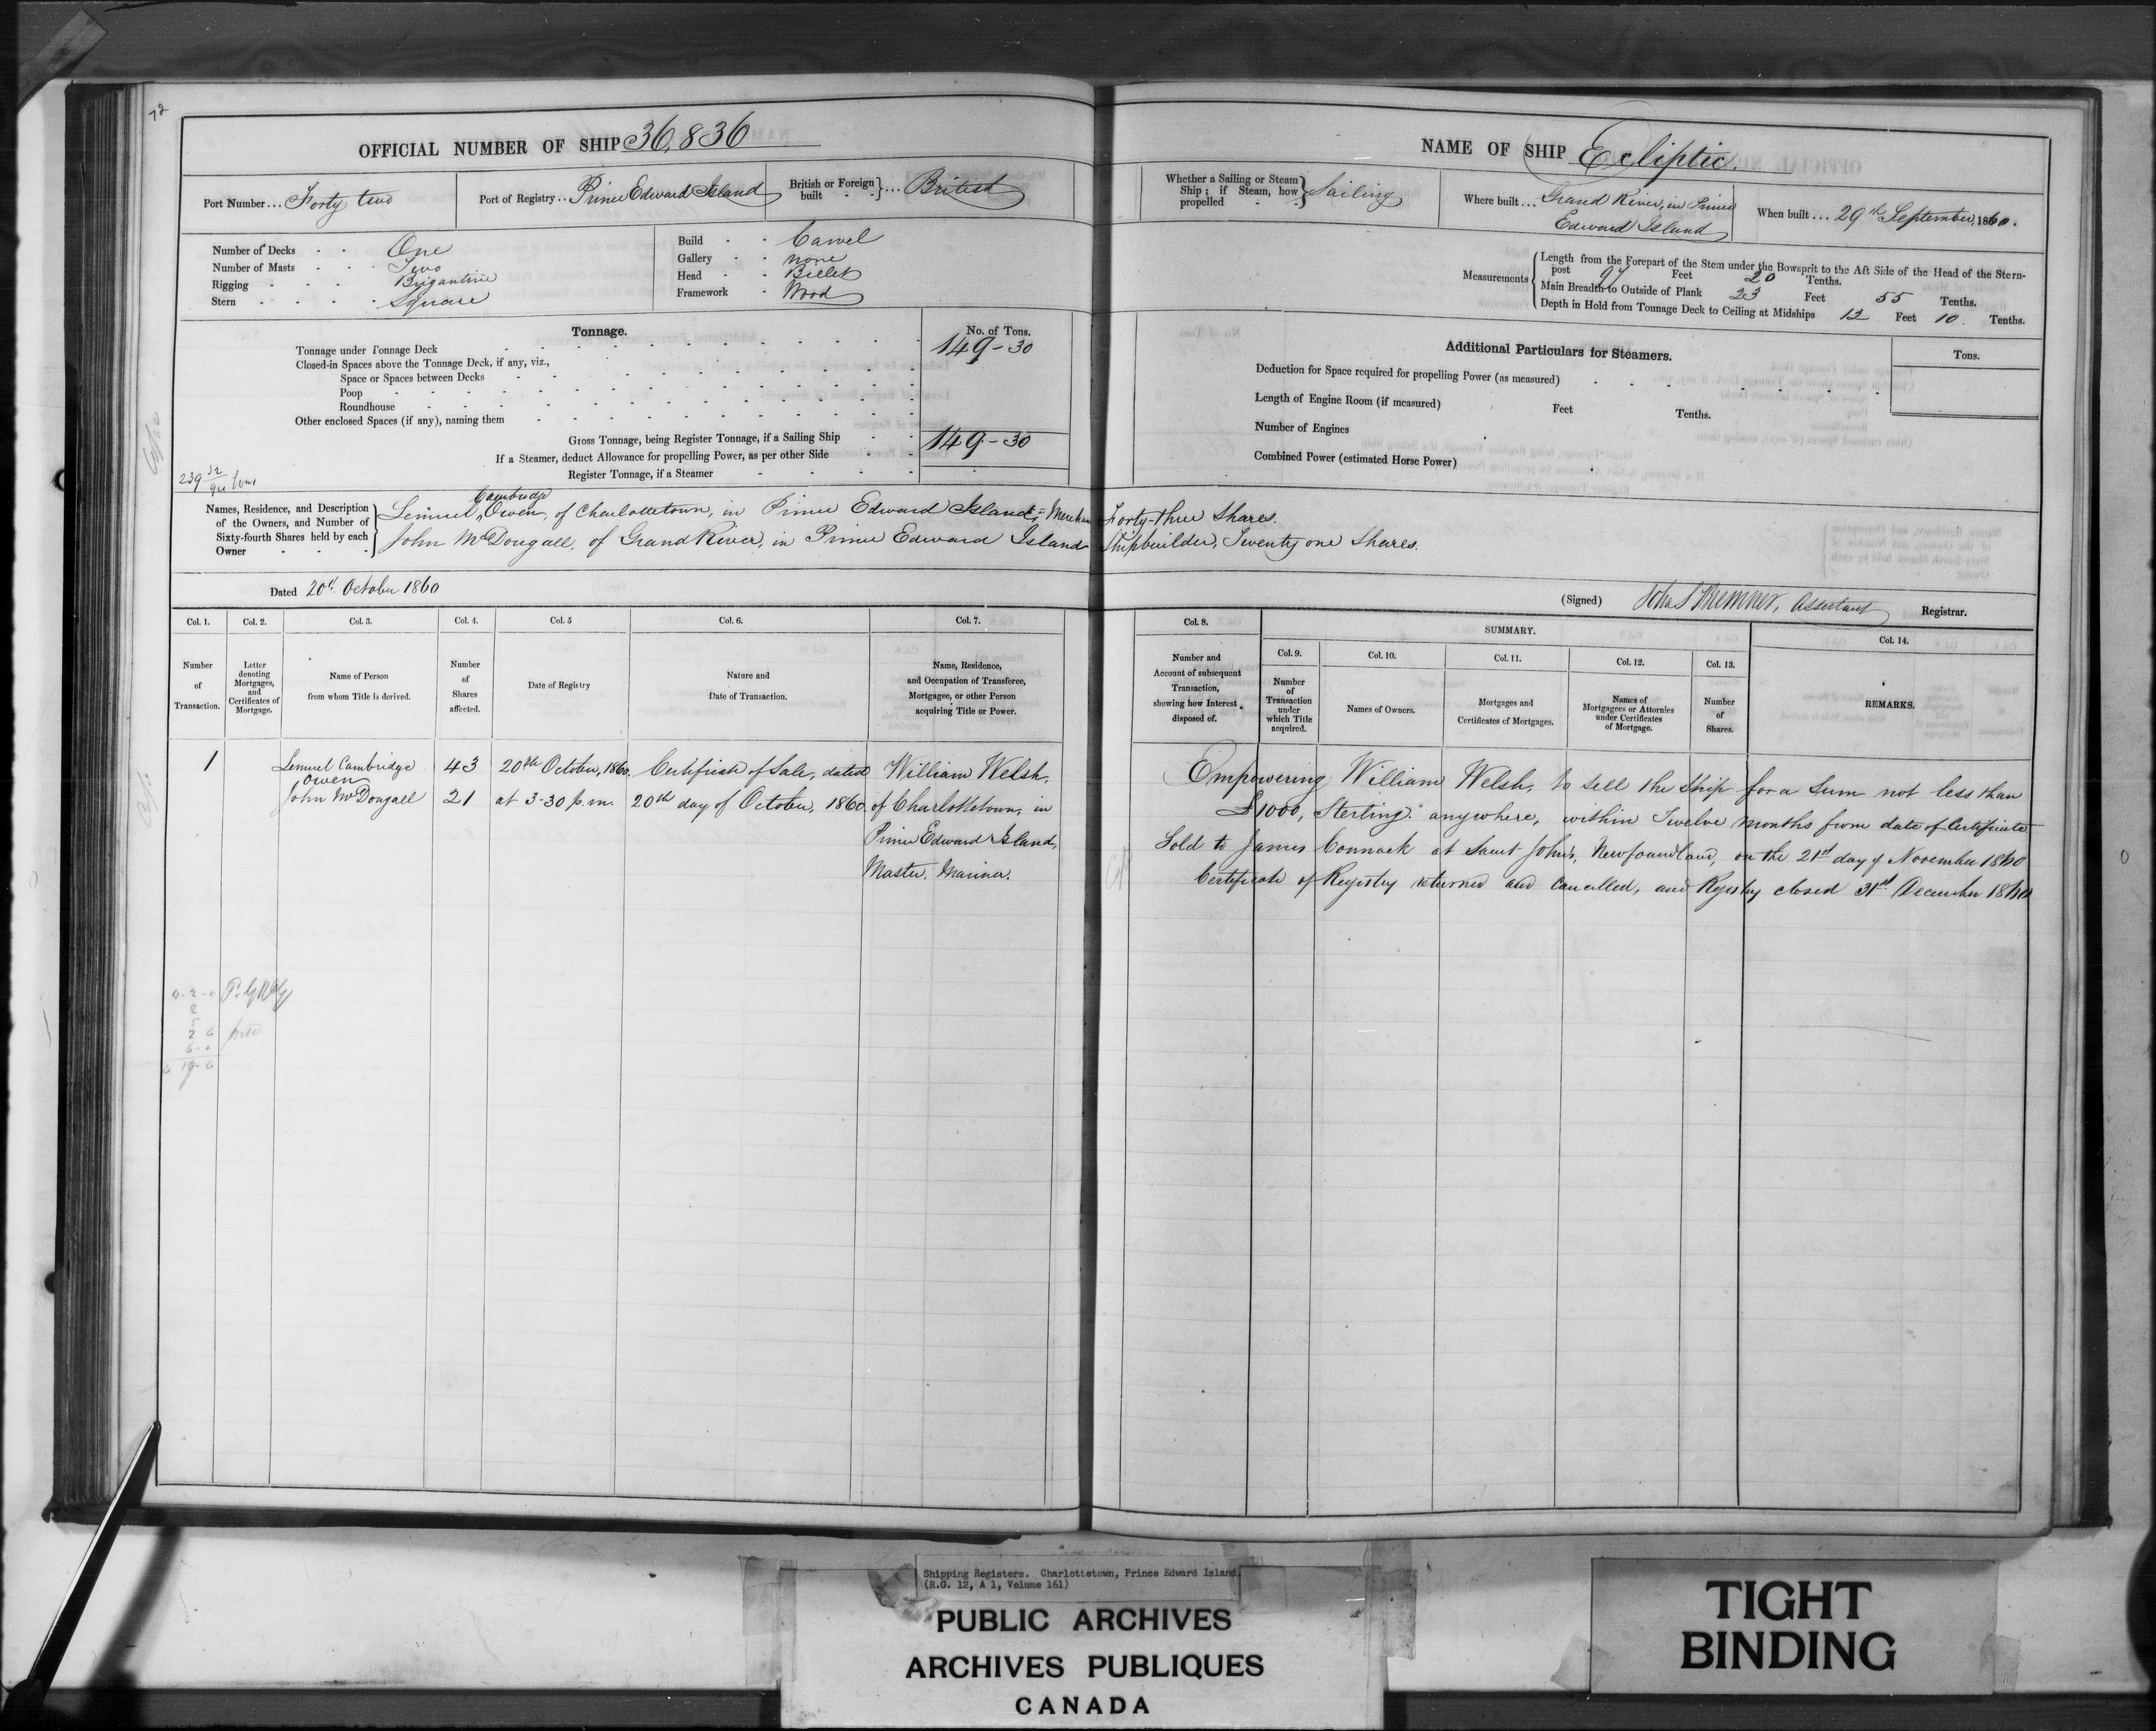 72
OFFICIAL NUMBER OF SHIP 36,836
Port Number... Forty two
Port of Registry.. Prince Edward Island
British or Foreign built - - } ... British
Number of Decks - - One
Number of Masts - - Two
Rigging - - - Brigantine
Stern - - - - Square
Build - - Carvel
Gallery - - none
Head - - Billet
Framework - Wood
Tonnage.
No. of Tons.
Tonnage under Tonnage Deck 149-30
Closed-in Spaces above the Tonnage Deck, if any, viz.,
Space or Spaces between Decks
Poop
Roundhouse
Other enclosed Spaces (if any), naming them
Gross Tonnage, being Register Tonnage, if a Sailing Ship 149-30
If a Steamer, deduct Allowance for propelling Power, as per other Side
Register Tonnage, if a Steamer
239 tons
Names, Residence, and Description of the Owners, and Number of Sixty-fourth Shares held by each Owner
Lemuel Cambridge Owen, of Charlottetown, in Prince Edward Island, Merchant Forty-three Shares.
John McDougall, of Grand River, in Prince Edward Island Shipbuilder, Twenty one Shares.
Dated 20th October 1860
NAME OF SHIP Ecliptic.
Whether a Sailing or Steam Ship; if Steam, how propelled } Sailing
Where built... Grand River, in Prince Edward Island
When built... 29th September, 1860.
Measurements
Length from the Forepart of the Stem under the Bowsprit to the Aft Side of the Head of the Stern-
post 97 Feet 20 Tenths.
Main Breadth to Outside of Plank 23 Feet 55 Tenths.
Depth in Hold from Tonnage Deck to Ceiling at Midships 12 Feet 10. Tenths.
Additional Particulars for Steamers.
Tons.
Deduction for Space required for propelling Power (as measured)
Length of Engine Room (if measured) Feet Tenths.
Number of Engines
Combined Power (estimated Horse Power)
(Signed) Assistant Registrar.
Col. 1. Col. 2. Col. 3. Col. 4. Col. 5 Col. 6. Col. 7.
Number of Transaction.
Letter denoting Mortgages, and Certificates of Mortgage.
Name of Person from whom Title is derived.
Number of Shares affected.
Date of Registry
Nature and Date of Transaction.
Name, Residence, and Occupation of Transferee, Mortgagee, or other Person acquiring Title or Power.
Col. 8.
Number and Account of subsequent Transaction, showing how Interest disposed of.
SUMMARY.
Col. 9. Col. 10. Col. 11. Col. 12. Col. 13.
Number of Transaction under which Title acquired.
Names of Owners.
Mortgages and Certificates of Mortgages.
Names of Mortgagees or Attornies under Certificates of Mortgage.
Number of Shares.
Col. 14.
REMARKS.
1 Lemuel Cambridge Owen 43 20th October, 1860. Certificate of Sale, dated William Welsh,
John McDougall 21 at 3-30 p.m. 20th day of October, 1860. of Charlottetown, in
Prince Edward Island,
Master, Mariner.
Empowering William Welsh, to sell the Ship for a Sum not less than
£1000, Sterling. anywhere, within Twelve months from date of Certificate
Sold to James Cormack at Saint John's, Newfoundland, on the 21st day of November 1860
Certificate of Registry returned and cancelled, and Registry closed 31st December 1860
Shipping Registers. Charlottetown, Prince Edward Island.
(R.G. 12, A 1, Volume 161)
PUBLIC ARCHIVES
ARCHIVES PUBLIQUES
CANADA
TIGHT
BINDING